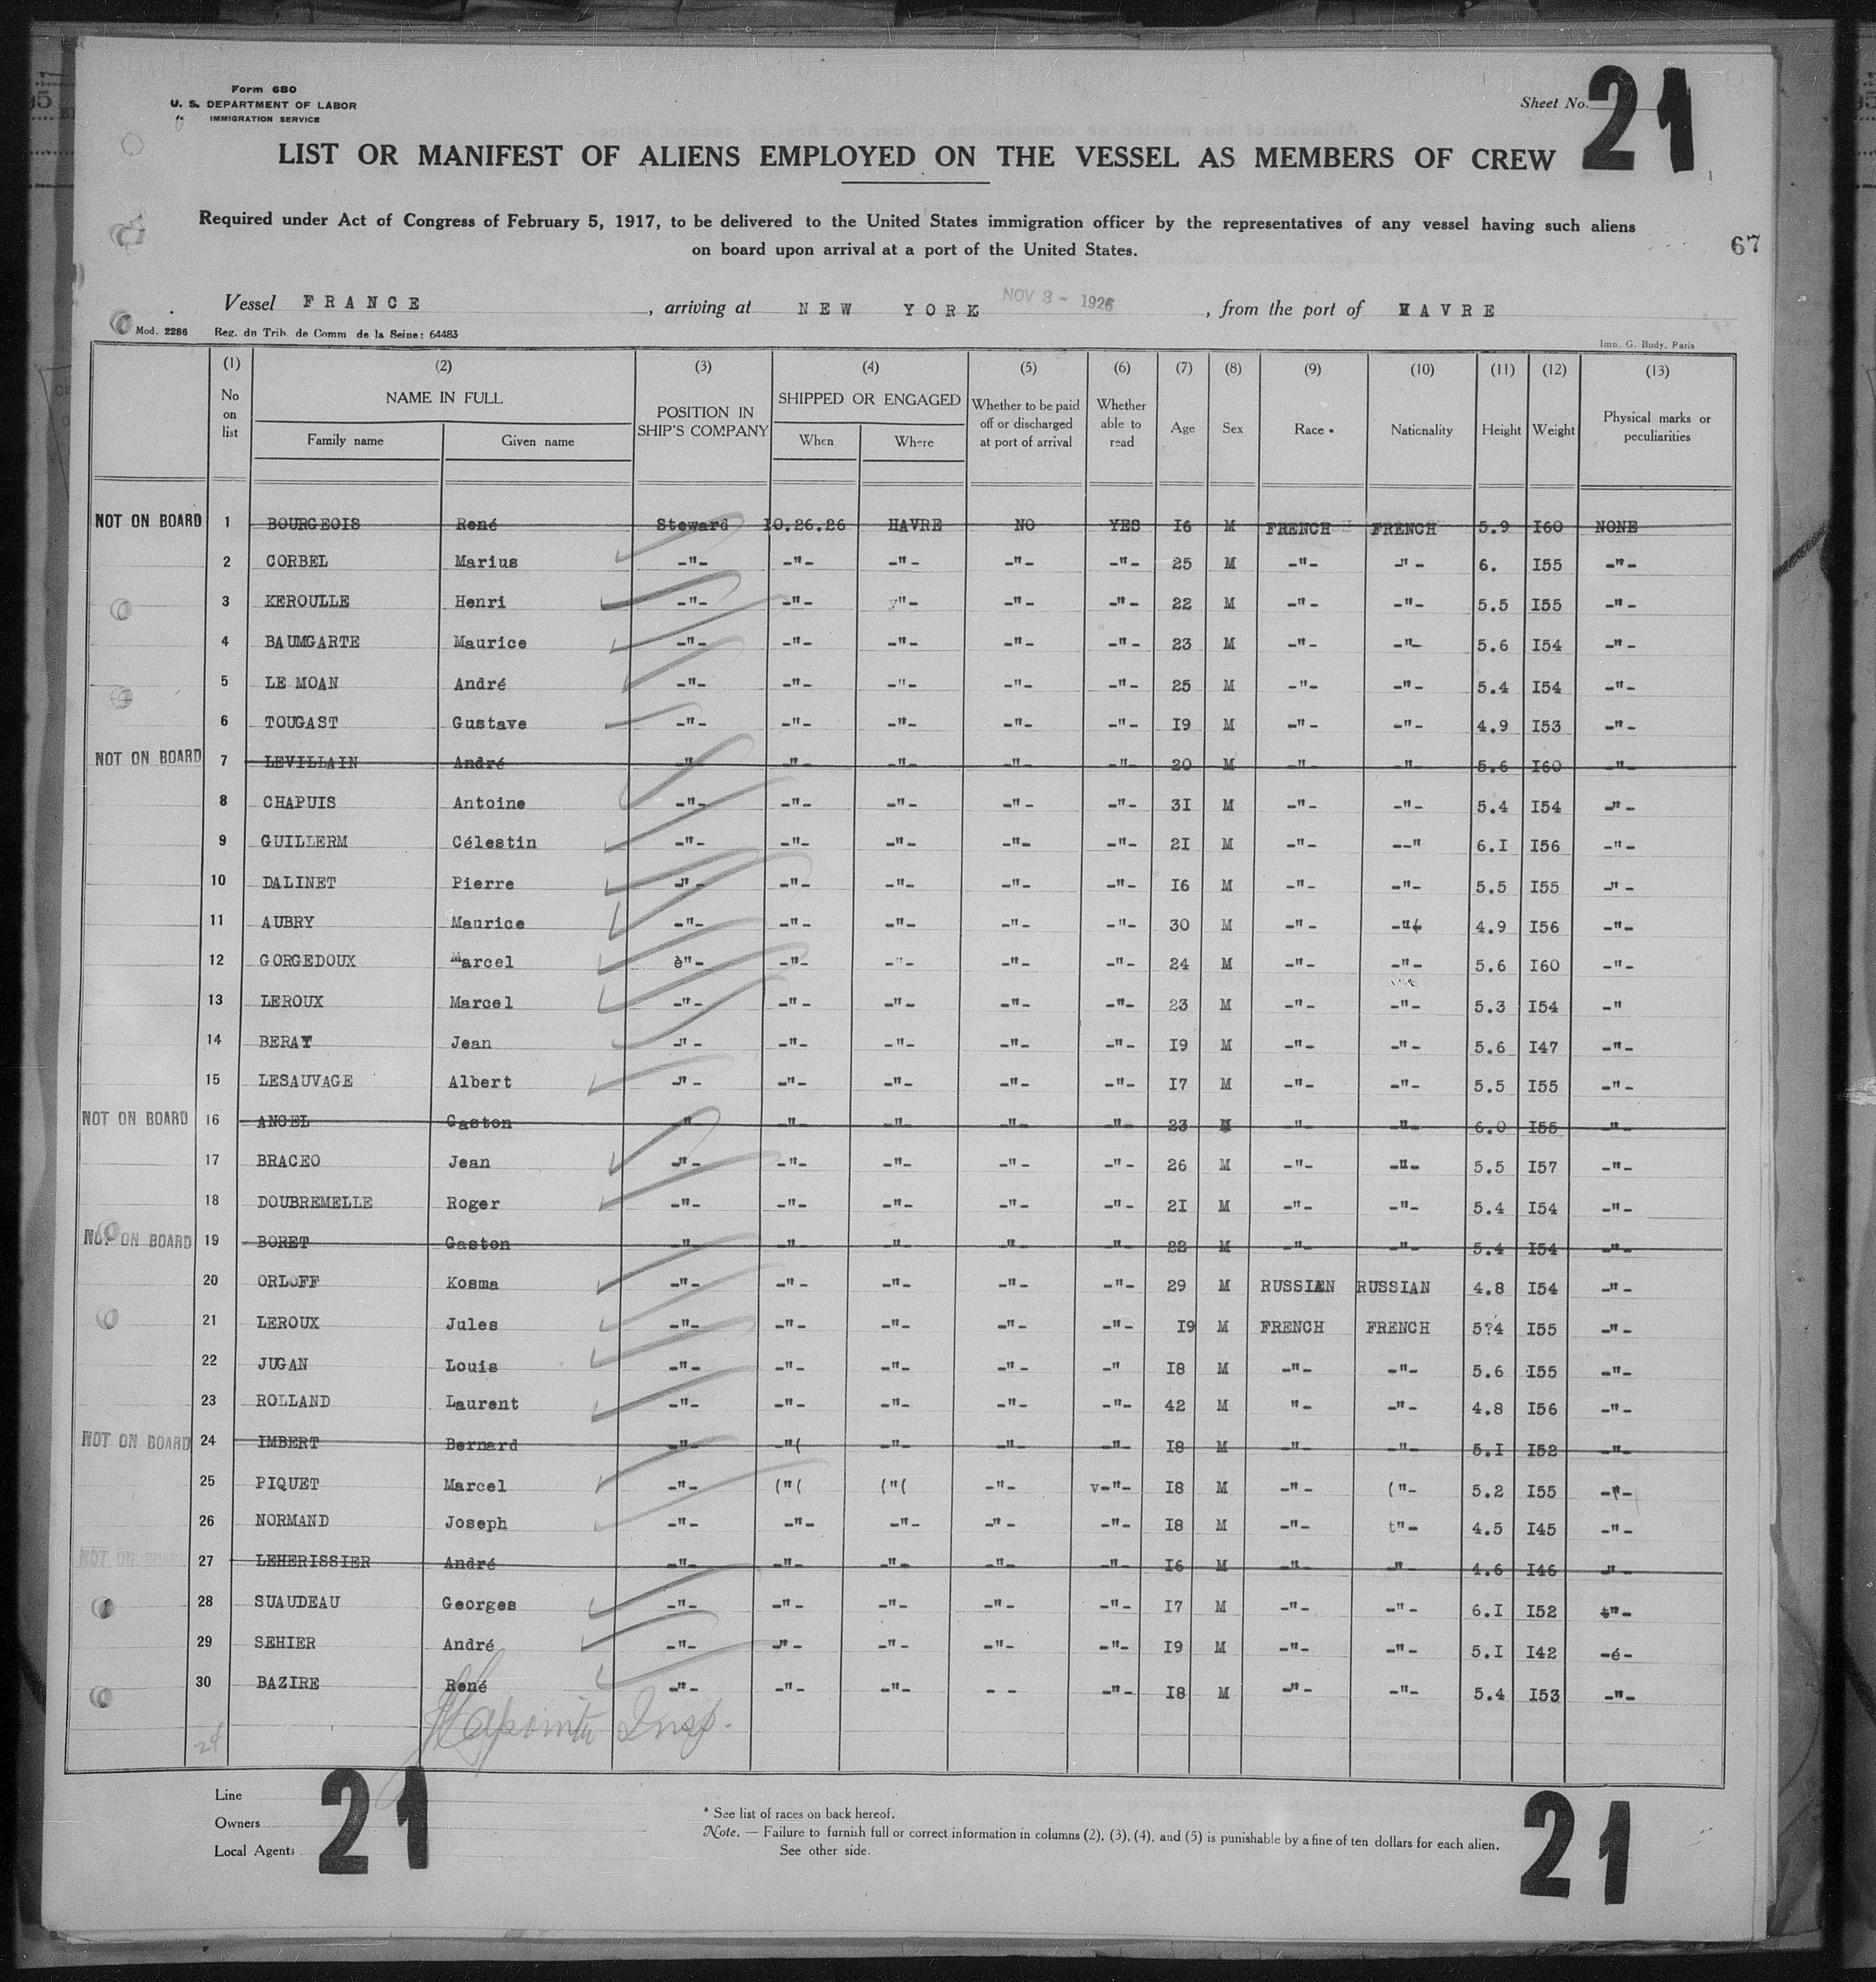 Form 680
U. S. DEPARTMENT OF LABOR
IMMIGRATION SERVICE
Sheet No. 21
LIST OR MANIFEST OF ALIENS EMPLOYED ON THE VESSEL AS MEMBERS OF CREW
Required under Act of Congress of February 5, 1917, to be delivered to the United States immigration officer by the representatives of any vessel having such aliens
on board upon arrival at a port of the United States.
67
Vessel FRANCE, arriving at NEW YORK NOV 3 - 1926, from the port of HAVRE
Mod. 2286 Reg. du Trib. de Comm de la Seine: 64483
Imp. G. Budy, Paris
(1) (2) (3) (4) (5) (6) (7) (8) (9) (10) (11) (12) (13)
No on list NAME IN FULL Family name Given name POSITION IN SHIP'S COMPANY SHIPPED OR ENGAGED When Where Whether to be paid off or discharged at port of arrival Whether able to read Age Sex Race * Nationality Height Weight Physical marks or peculiarities
NOT ON BOARD 1 BOURGEOIS René Steward 10.26.26 HAVRE NO YES I6 M FRENCH FRENCH 5.9 I60 NONE
2 CORBEL Marius -"- -"- -"- -"- -"- 25 M -"- -"- 6. I55 -"-
3 KEROULLE Henri -"- -"- "- -"- -"- 22 M -"- -"- 5.5 I55 -"-
4 BAUMGARTE Maurice -"- -"- -"- -"- -"- 23 M -"- -"- 5.6 I54 -"-
5 LE MOAN André -"- -"- -"- -"- -"- 25 M -"- -"- 5.4 I54 -"-
6 TOUGAST Gustave -"- -"- -"- -"- -"- I9 M -"- -"- 4.9 I53 -"-
NOT ON BOARD 7 LEVILLAIN André -"- -"- -"- -"- -"- 20 M -"- -"- 5.6 I60 -"-
8 CHAPUIS Antoine -"- -"- -"- -"- -"- 3I M -"- -"- 5.4 I54 -"-
9 GUILLERM Célestin -"- -"- -"- -"- -"- 2I M -"- --" 6.I I56 -"-
10 DALINET Pierre -"- -"- -"- -"- -"- I6 M -"- -"- 5.5 I55 -"-
11 AUBRY Maurice -"- -"- -"- -"- -"- 30 M -"- -"( 4.9 I56 -"-
12 GORGEDOUX Marcel è"- -"- -"- -"- -"- 24 M -"- -"- 5.6 I60 -"-
13 LEROUX Marcel -"- -"- -"- -"- -"- 23 M -"- -"- 5.3 I54 -"
14 BERAY Jean -"- -"- -"- -"- -"- I9 M -"- -"- 5.6 I47 -"-
15 LESAUVAGE Albert -"- -"- -"- -"- -"- I7 M -"- -"- 5.5 I55 -"-
NOT ON BOARD 16 ANGEL Gaston " -"- -"- -"- -"- 23 M -"- -"- 6.0 I55 -"-
17 BRACEO Jean -"- -"- -"- -"- -"- 26 M -"- -"- 5.5 I57 -"-
18 DOUBREMELLE Roger -"- -"- -"- -"- -"- 2I M -"- -"- 5.4 I54 -"-
NOT ON BOARD 19 BORET Gaston -"- -"- -"- -"- -"- 22 M -"- -"- 5.4 I54 -"-
20 ORLOFF Kosma -"- -"- -"- -"- -"- 29 M RUSSIEN RUSSIAN 4.8 I54 -"-
21 LEROUX Jules -"- -"- -"- -"- -"- I9 M FRENCH FRENCH 5?4 I55 -"-
22 JUGAN Louis -"- -"- -"- -"- -" I8 M -"- -"- 5.6 I55 -"-
23 ROLLAND Laurent -"- -"- -"- -"- -"- 42 M "- -"- 4.8 I56 -"-
NOT ON BOARD 24 IMBERT Bernard -"- -"( -"- -"- -"- I8 M -"- -"- 5.I I52 -"-
25 PIQUET Marcel -"- ("( ("( -"- v-"- I8 M -"- ("- 5.2 I55 -"-
26 NORMAND Joseph -"- -"- -"- -"- -"- I8 M -"- t"- 4.5 I45 -"-
NOT ON BOARD 27 LEHERISSIER André -"- -"- -"- -"- -"- I6 M -"- -"- 4.6 I46 -"-
28 SUAUDEAU Georges -"- -"- -"- -"- -"- I7 M -"- -"- 6.I I52 t"-
29 SEHIER André -"- -"- -"- -"- -"- I9 M -"- -"- 5.I I42 -é-
30 BAZIRE René -"- -"- -"- - - -"- I8 M -"- -"- 5.4 I53 -"-
Insp.
24
Line
Owners
Local Agents
21
* See list of races on back hereof.
Note. — Failure to furnish full or correct information in columns (2), (3), (4), and (5) is punishable by a fine of ten dollars for each alien.
See other side.
21